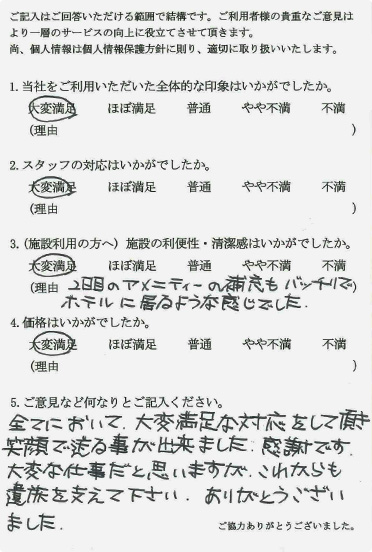 ご記入はご回答いただける範囲で結構です。ご利用者様の貴重なご意見は
より一層のサービスの向上に役立てさせて頂きます。
尚、個人情報は個人情報保護方針に則り、適切に取り扱いいたします。
1. 当社をご利用いただいた全体的な印象はいかがでしたか。
大変満足 ほぼ満足 普通 やや不満 不満
(理由 )
2. スタッフの対応はいかがでしたか。
大変満足 ほぼ満足 普通 やや不満 不満
(理由 )
3. (施設利用の方へ) 施設の利便性・清潔感はいかがでしたか。
大変満足 ほぼ満足 普通 やや不満 不満
(理由 2日目のアメニティーの補充もバッチリで
ホテルに居るような感じでした. )
4. 価格はいかがでしたか。
大変満足 ほぼ満足 普通 やや不満 不満
(理由 )
5. ご意見など何なりとご記入ください。
全てにおいて、大変満足な対応をして頂き
笑顔で送る事が出来ました. 感謝です.
大変な仕事だと思いますが、これからも
遺族を支えて下さい. ありがとうござい
ました.
ご協力ありがとうございました。